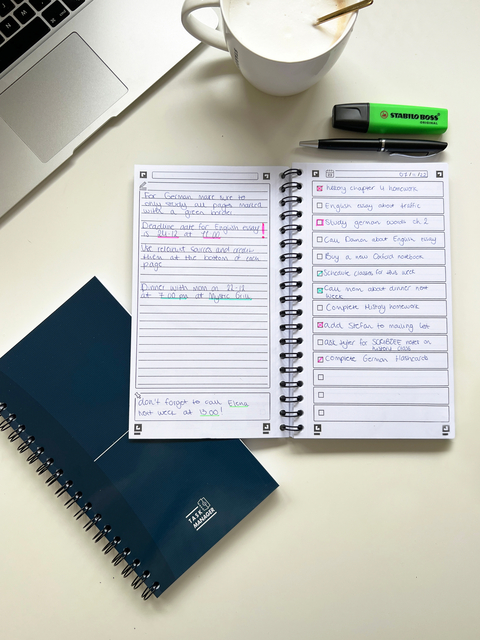 STABILO BOSS
ORIGINAL
For German make sure to
only study all pages marked
with a green border
Deadline date for English essay
is 24-12 at 11.00
Use relevant sources and
them at the bottom of each
page
Dinner with mom on 22-12
at 7.00 pm at Mystic Grill
don't forget to call Elena
next week at 13.00!
history chapter 4 homework
English essay about traffic
Study german words ch.2
Call Damon about English essay
Buy a new Oxford notebook
Schedule classes for this week
Call mom about dinner next
week
Complete History homework
add Stefan to mailing list
ask tyler for SCRIBZEE notes on
history class
Complete German flashcards
TASK
MANAGER